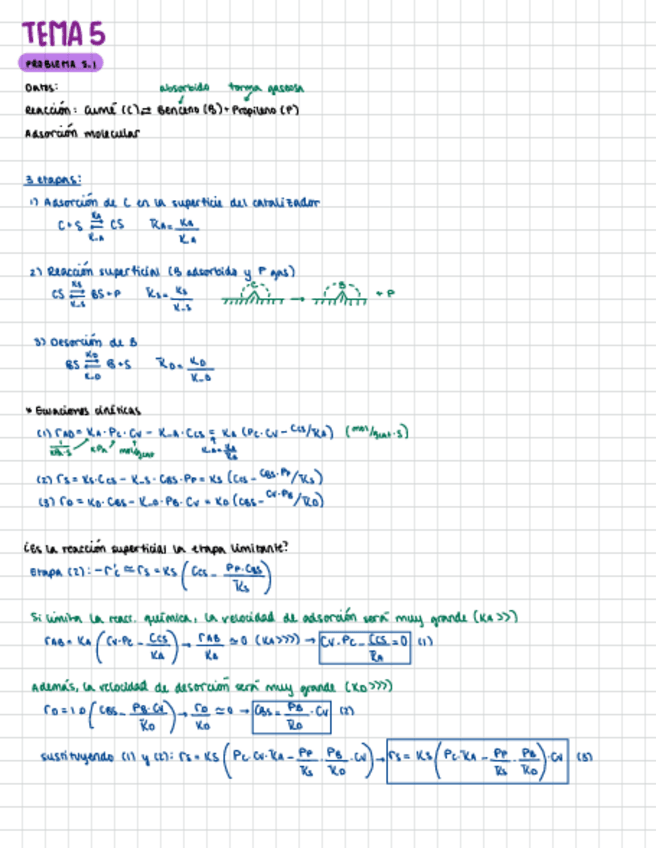 TEMA 5
PROBLEMA 5.1
Datos: absorbido forma gaseosa
Reacción: Cumé (C) ⇄ Benceno (B) + Propileno (P)
Adsorción molecular
3 etapas:
1) Adsorción de C en la superficie del catalizador
C + S ⇄ CS
2) Reacción superficial (B adsorbido y P gas)
CS ⇄ BS + P
-C- → -B- + P
3) Desorción de B
BS ⇄ B + S
* Ecuaciones cinéticas
(1) rAD = KA · PC · CV - K-A · CCS = KA (PC · CV - CCS/KA) (mol/gcat·s)
(2) rS = KS · CCS - K-S · CBS · PP = KS (CCS - CBS·PP/KS)
(3) rD = KD · CBS - K-D · PB · CV = KD (CBS - CV·PB/KD)
¿Es la reacción superficial la etapa limitante?
Etapa (2): -r'C ≅ rS = KS (CCS - PP·CBS/KS)
Si limita la reacc. química, la velocidad de adsorción será muy grande (KA>>)
rAB = KA (CV·PC - CCS/KA) → rAB/KA ≃ 0 (KA>>>) → CV·PC - CCS/KA = 0 (1)
Además, la velocidad de desorción será muy grande (KD>>>)
→ rD/KD ≃ 0 → CBS = PB/KD · CV (2)
sustituyendo (1) y (2): rS = KS (PC·CV·KA - PP/KS · PB/KD · CV) → rS = KS (PC·KA - PP/KS · PB/KD) · CV (3)